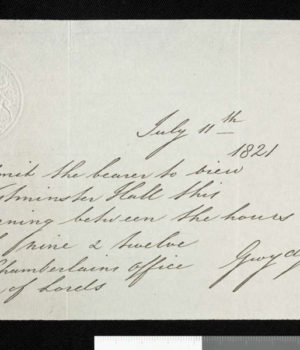 July 11th
1821
mit the bearer to view
tminster Hall this
ning between the hours
nine & twelve
Chamberlains office
of Lords
Gwyd